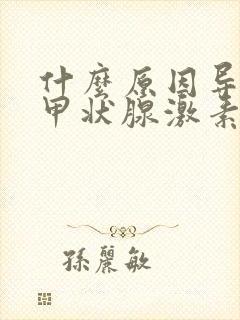 什麼原因导
甲状腺激素
孫麗敏